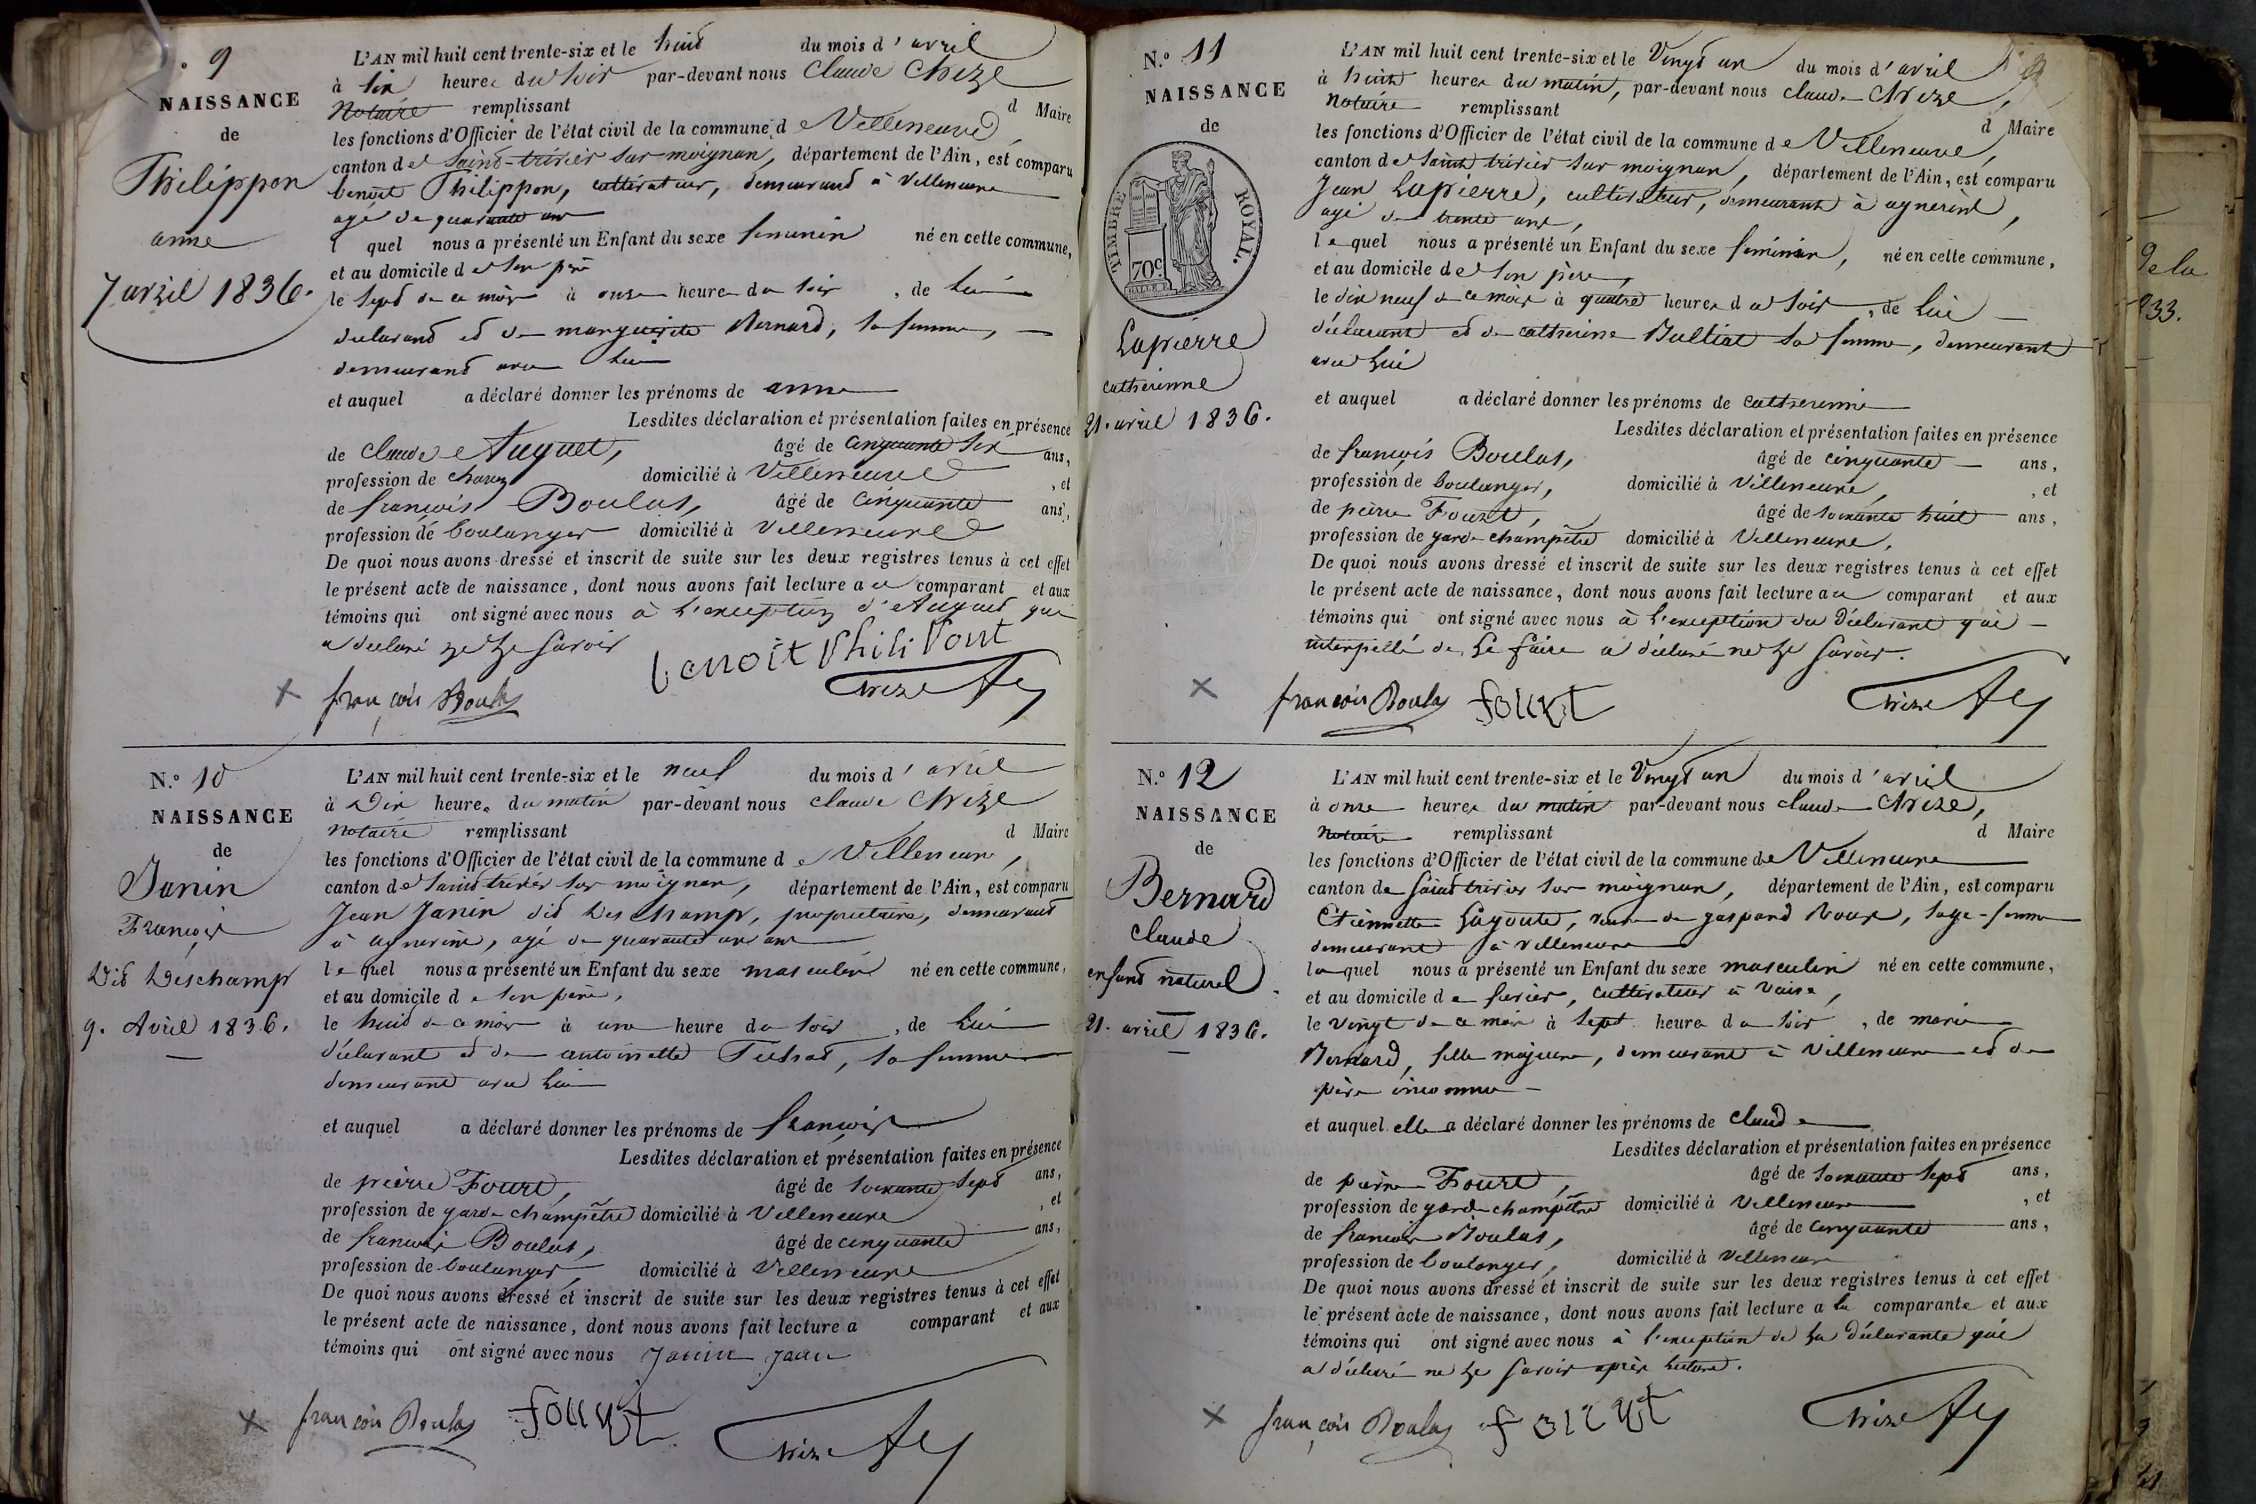 ° 9
NAISSANCE
de
Philippon
anne
7 avril 1836.
L'AN mil huit cent trente-six et le huit du mois d'avril
à six heures du soir par-devant nous Claude Chize
Notaire remplissant d Maire
les fonctions d'Officier de l'état civil de la commune de Villeneuve,
canton de Saint-trivier sur moignan, département de l'Ain, est comparu
benoit Philippon, cultivateur, demeurant à Villeneuve
agé de quarante ans
l quel nous a présenté un Enfant du sexe feminin né en cette commune,
et au domicile de son père
le sept de ce mois à onze heures du soir, de lui
declarant et de marguerite Bernard, sa femme,
demeurant avec lui
et auquel a déclaré donner les prénoms de anne
Lesdites déclaration et présentation faites en présence
de claude Auguet, âgé de cinquante six ans,
profession de domicilié à Villeneuve, et
de françois Boulas, âgé de cinquante ans,
profession de boulanger domicilié à Villeneuve
De quoi nous avons dressé et inscrit de suite sur les deux registres tenus à cet effet
le présent acte de naissance, dont nous avons fait lecture au comparant et aux
témoins qui ont signé avec nous à l'exception d'Auguet qui
a declaré ne le savoir
benoit Philipont
françois Boulas Chize
N.° 10
NAISSANCE
de
Janin
François
Dit Deschamp
9. Avril 1836.
L'AN mil huit cent trente-six et le neuf du mois d'avril
à Dix heures du matin par-devant nous claude Chize
Notaire remplissant d Maire
les fonctions d'Officier de l'état civil de la commune de Villeneuve,
canton de Saint trivier sur moignan, département de l'Ain, est comparu
Jean Janin dit Deschamp, propriétaire, demeurant
à agnerin, agé de quarante un ans
le quel nous a présenté un Enfant du sexe masculin né en cette commune,
et au domicile de son père,
le huit de ce mois à une heure du soir, de lui
déclarant et de antoinette, sa femme
demeurant avec lui
et auquel a déclaré donner les prénoms de françois
Lesdites déclaration et présentation faites en présence
de pierre Fourt, âgé de soixante sept ans,
profession de garde champêtre domicilié à Villeneuve, et
de françois Boulas, âgé de cinquante ans,
profession de boulanger, domicilié à Villeneuve
De quoi nous avons dressé et inscrit de suite sur les deux registres tenus à cet effet
le présent acte de naissance, dont nous avons fait lecture a comparant et aux
témoins qui ont signé avec nous Janin Jean
françois Boulas fourt Chize
N.° 11
NAISSANCE
de
TIMBRE ROYAL.
70c
Lapierre
catherinne
21. avril 1836.
L'AN mil huit cent trente-six et le Vingt un du mois d'avril
à huit heures du matin, par-devant nous claude Chize,
Notaire remplissant d Maire
les fonctions d'Officier de l'état civil de la commune de Villeneuve,
canton de Saint trivier sur moignan, département de l'Ain, est comparu
Jean Lapierre, cultivateur, demeurant à agnerin,
agé de trente ans,
le quel nous a présenté un Enfant du sexe féminin, né en cette commune,
et au domicile de son père,
le dix neuf de ce mois à quatre heures du soir, de lui
déclarant et de catherine Bulliat sa femme, demeurant
avec lui
et auquel a déclaré donner les prénoms de catherinne
Lesdites déclaration et présentation faites en présence
de françois Boulas, âgé de cinquante ans,
profession de boulanger, domicilié à Villeneuve, et
de pierre Fourt, âgé de soixante huit ans,
profession de garde champêtre domicilié à Villeneuve,
De quoi nous avons dressé et inscrit de suite sur les deux registres tenus à cet effet
le présent acte de naissance, dont nous avons fait lecture au comparant et aux
témoins qui ont signé avec nous à l'exception du déclarant qui
interpellé de le faire a déclaré ne le savoir.
françois Boulas fourt Chize
N.° 12
NAISSANCE
de
Bernard
claude
enfant naturel
21. avril 1836.
L'AN mil huit cent trente-six et le Vingt un du mois d'avril
à onze heures du matin par-devant nous claude Chize,
Notaire remplissant d Maire
les fonctions d'Officier de l'état civil de la commune de Villeneuve
canton de Saint trivier sur moignan, département de l'Ain, est comparu
Etiennette Lagoute, veuve de gaspard Roux, sage-femme
demeurant à Villeneuve
la quel nous a présenté un Enfant du sexe masculin né en cette commune,
et au domicile de, cultivateur à,
le vingt de ce mois à sept heures du soir, de marie
Bernard, fille majeure, demeurant à Villeneuve et de
père inconnu
et auquel elle a déclaré donner les prénoms de claude
Lesdites déclaration et présentation faites en présence
de pierre Fourt, âgé de soixante sept ans,
profession de garde champêtre domicilié à Villeneuve, et
de françois Boulas, âgé de cinquante ans,
profession de boulanger, domicilié à Villeneuve
De quoi nous avons dressé et inscrit de suite sur les deux registres tenus à cet effet
le présent acte de naissance, dont nous avons fait lecture a la comparante et aux
témoins qui ont signé avec nous à l'exception de la déclarante qui
a déclaré ne le savoir après lecture.
françois Boulas fourt Chize
de la
233.